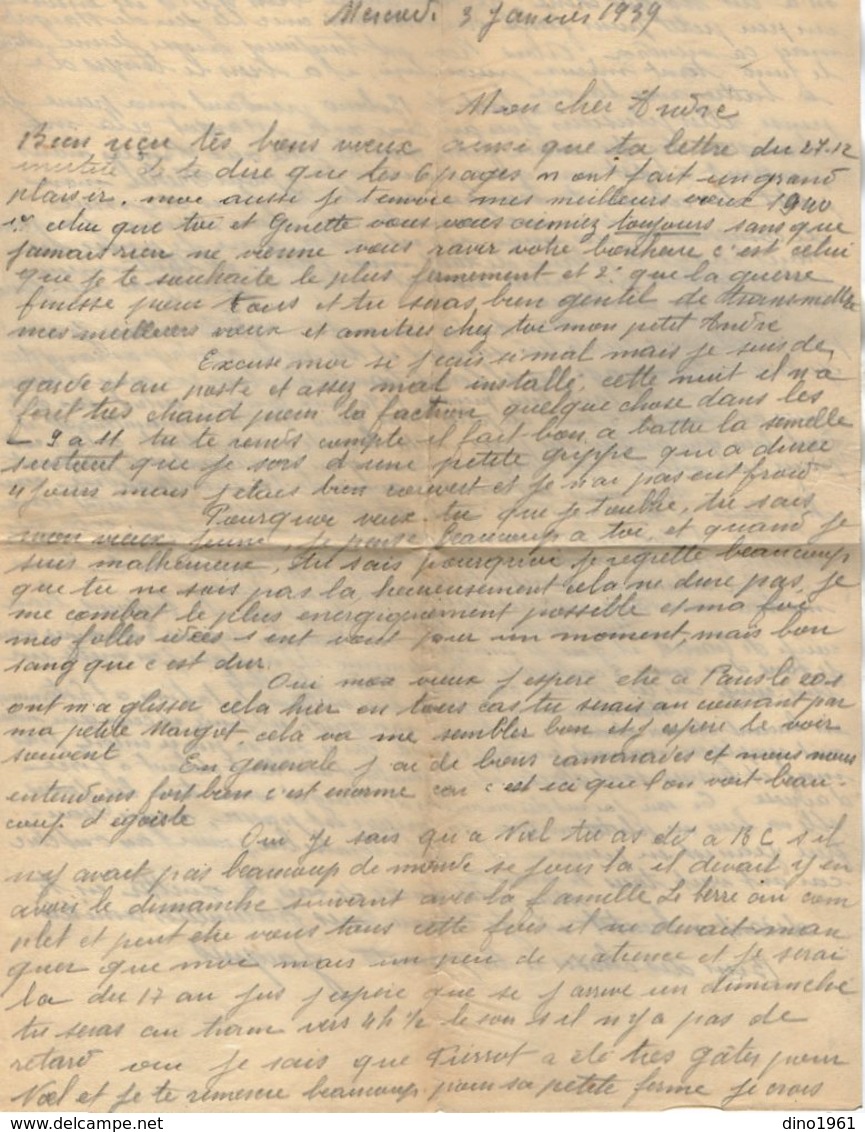 Mercredi 3 Janvier 1939
Mon cher Andre
Bien reçu tes bons vœux ainsi que ta lettre du 27-12
inutile de te dire que les 6 pages m ont fait un grand
plaisir. moi aussi je t'envoie mes meilleurs vœux 1940
celui que toi et Ginette vous vous aimiez toujours sans que
jamais rien ne vienne vous ravir votre bonheur c'est celui
que je te souhaite le plus fermement et 2° que la guerre
finisse pour tous et tu seras bien gentil de transmettre
mes meilleurs vœux et amitiés chez toi mon petit Andre
Excuse moi si j ecris si mal mais je suis de
garde et au poste et assez mal installe. cette nuit il n'a
fait très chaud pour la faction quelque chose dans les
- 9 a 11 tu te rends compte il fait bon a battre la semelle
surtout que je sors d une petite grippe qui a duree
4 jours mais j etais bien couvert et je n'ai pas eut froid
Pourquoi veux tu que je t'oublie, tu sais
mon vieux jeune, je pense beaucoup a toi, et quand je
suis malheureux, tu sais pourquoi je regrette beaucoup
que tu ne sois pas la heureusement cela ne dure pas, je
me combat le plus energiquement possible et ma foi
mes folles idées s ent vont pour un moment, mais bon
sang que c'est dur.
Oui mon vieux j espere etre a Paris le 20 s
ont m a glisser cela hier en tous cas tu serais au courant par
ma petite Margot, cela va me sembler bon et j espere te voir
souvent
En generale j ai de bons camarades et nous nous
entendons fort bien c'est enorme car c'est ici que l'on voit beau-
coup d'egoiste
Oui je sais qu'a Noel tu as été a B C s il
n'y avait pas beaucoup de monde ce jour la il devait y en
avoir le dimanche suivant avec la famille Le Berre au com
plet et peut etre vous tous cette fois il ne devait man
quer que moi mais un peu de patience et je serai
la du 17 au jus j espere que si j arrive un dimanche
tu seras au tram vers 4h ½ le soir s il n'y a pas de
retard oui je sais que Pierrot a été très gâter pour
Noel et je te remercie beaucoup pour sa petite ferme je crois
dino1961